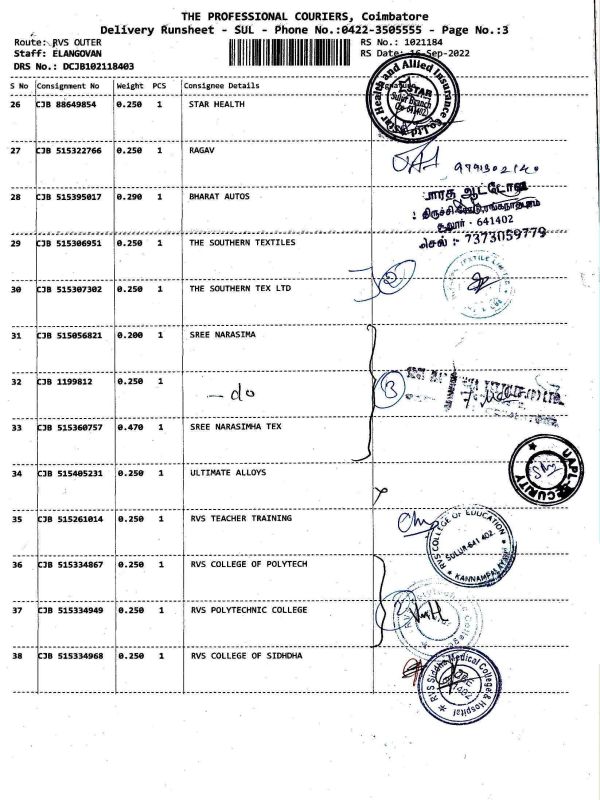 THE PROFESSIONAL COURIERS, Coimbatore
Delivery Runsheet - SUL - Phone No.:0422-3505555 - Page No.:3
Route: RVS OUTER
RS No.: 1021184
Staff: ELANGOVAN
RS Date: 16-Sep-2022
DRS No.: DCJB102118403
S No Consignment No Weight PCS Consignee Details Signature
26 CJB 88649854 0.250 1 STAR HEALTH
Star Health and Allied Insurance Co.Ltd
STAR
Sulur Branch
641402
27 CJB 515322766 0.250 1 RAGAV
28 CJB 515395017 0.290 1 BHARAT AUTOS
பாரத ஆட்டோஸ்
641402
செல் : 7373059779
29 CJB 515306951 0.250 1 THE SOUTHERN TEXTILES
30 CJB 515307302 0.250 1 THE SOUTHERN TEX LTD
2
31 CJB 515056821 0.200 1 SREE NARASIMA
32 CJB 1199812 0.250 1 - do
3
33 CJB 515360757 0.470 1 SREE NARASIMHA TEX
34 CJB 515405231 0.250 1 ULTIMATE ALLOYS
UAPL SECURITY
35 CJB 515261014 0.250 1 RVS TEACHER TRAINING
RVS COLLEGE OF EDUCATION
SULUR-641 402
KANNAMPALAYAM
36 CJB 515334867 0.250 1 RVS COLLEGE OF POLYTECH
37 CJB 515334949 0.250 1 RVS POLYTECHNIC COLLEGE
2
38 CJB 515334968 0.250 1 RVS COLLEGE OF SIDHDHA
RVS Siddha Medical College & Hospital